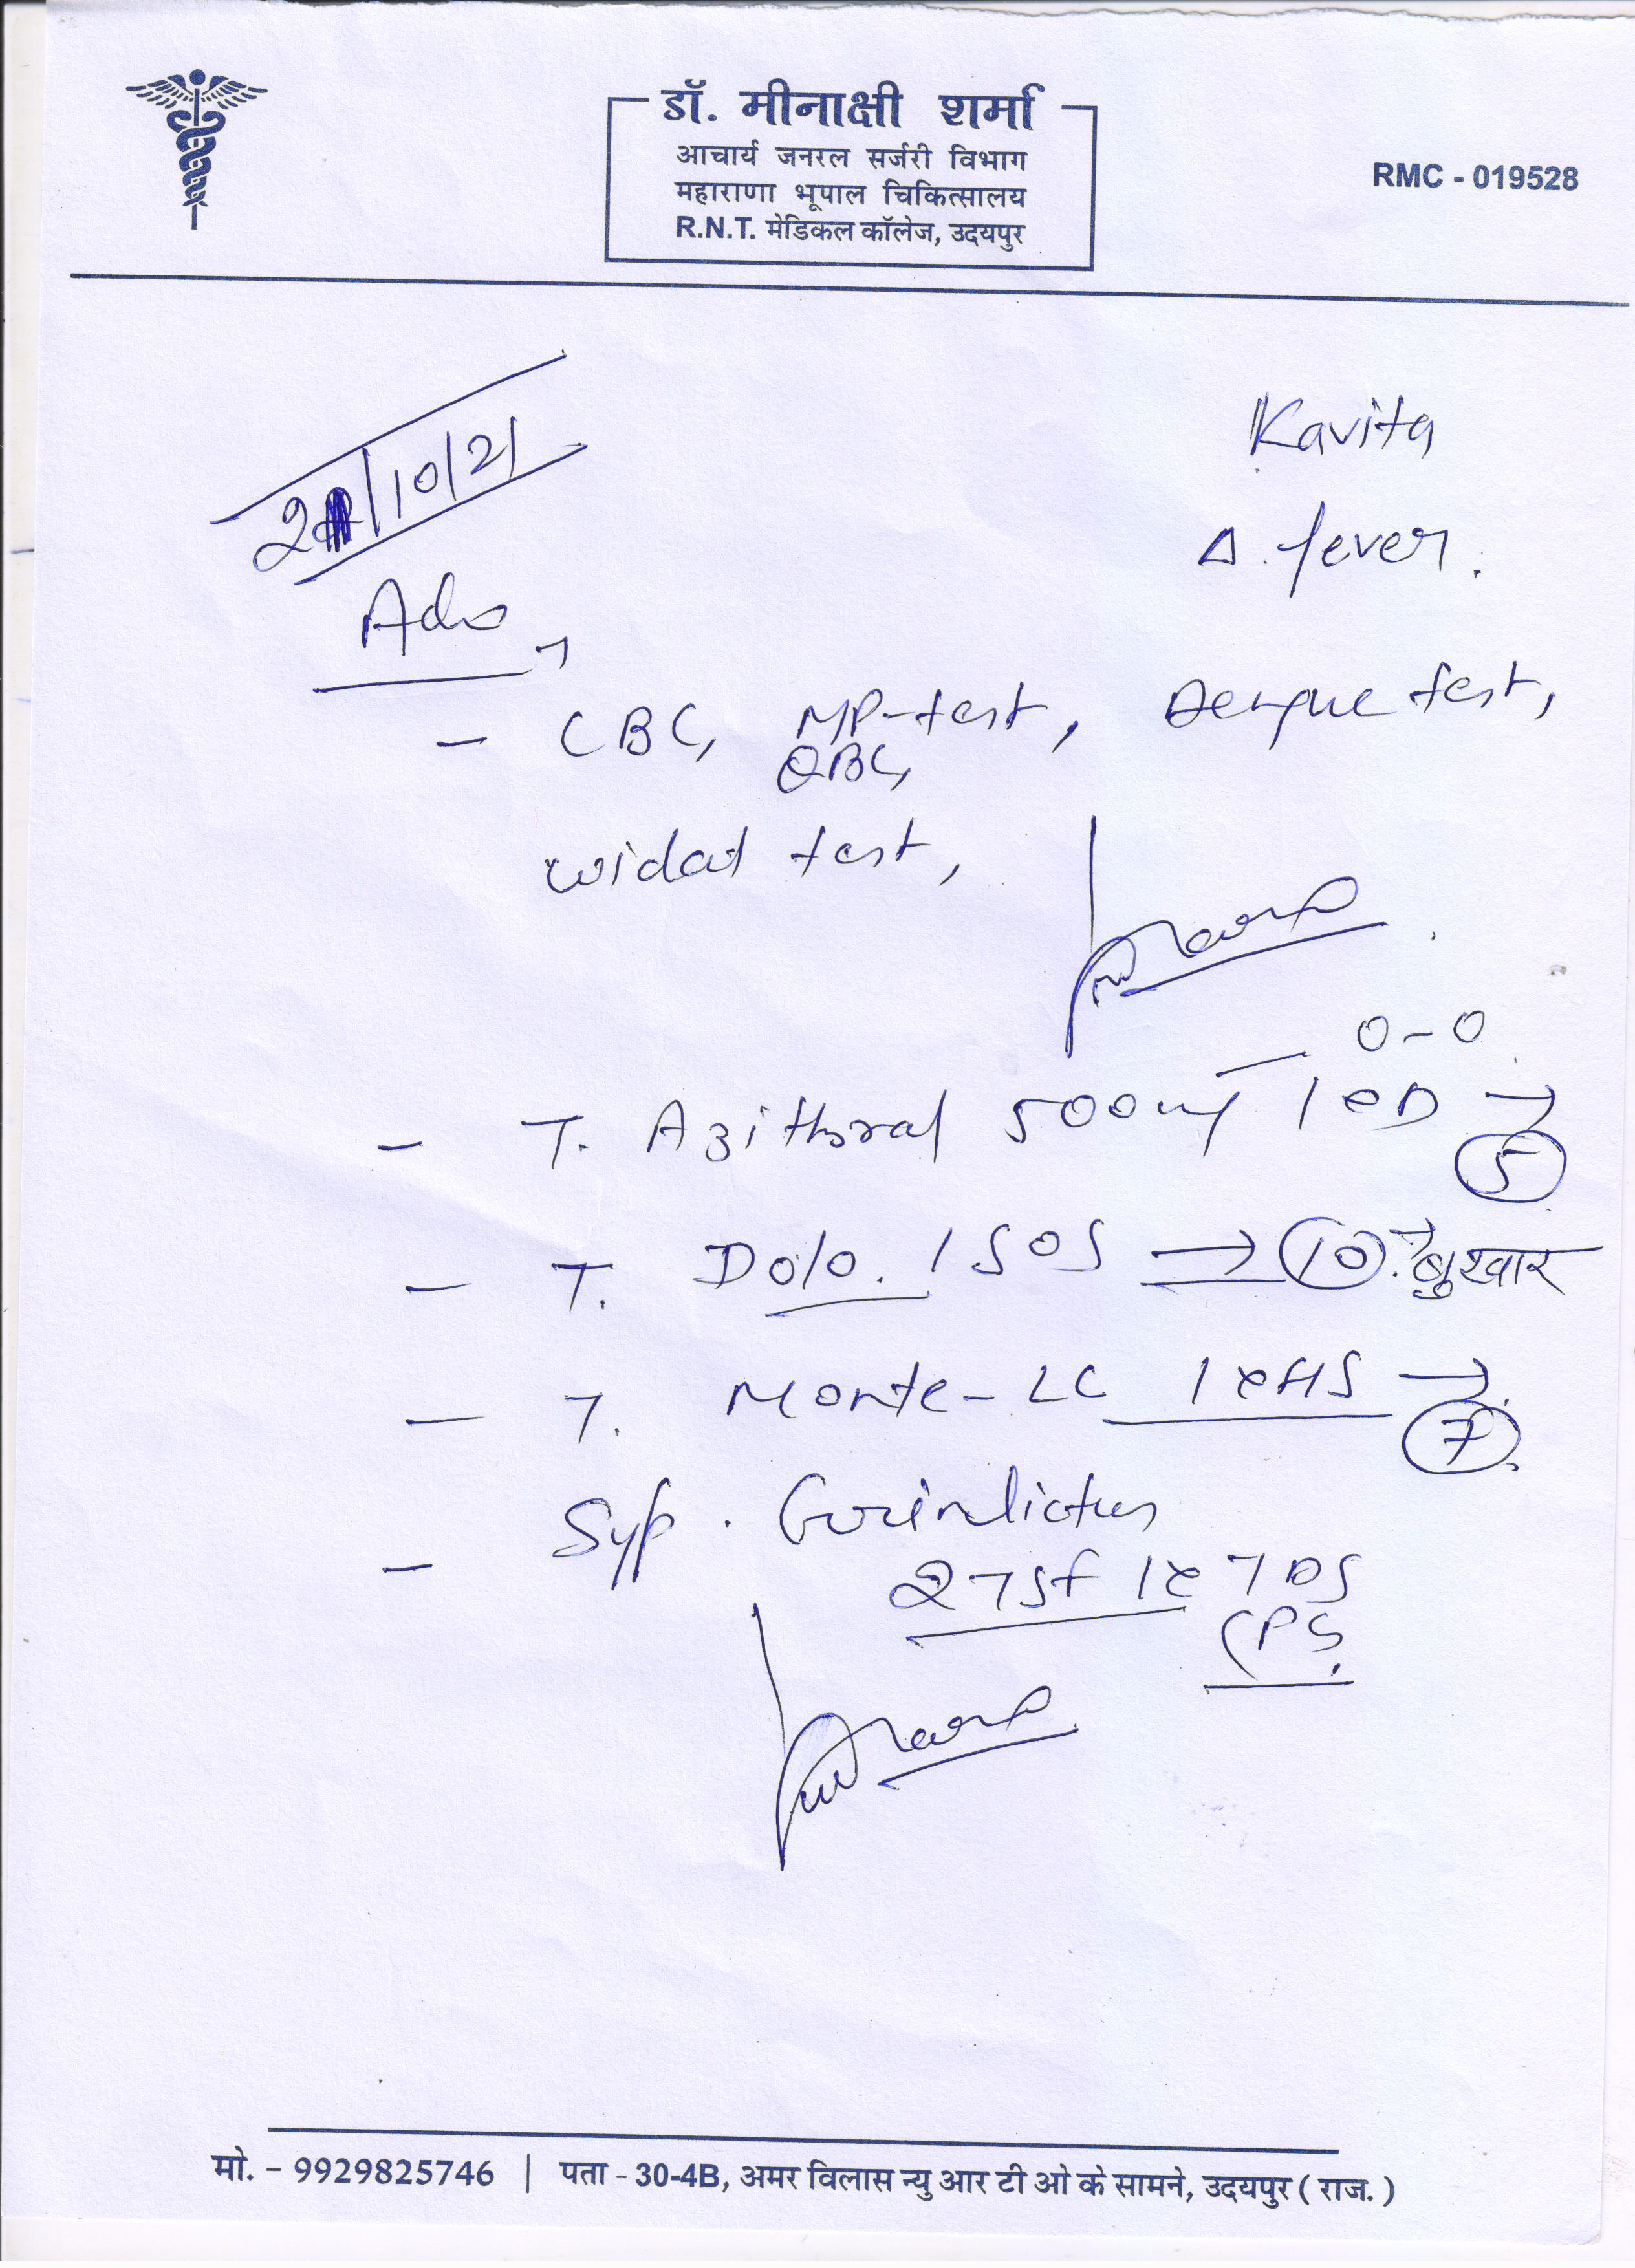 डॉ. मीनाक्षी शर्मा
आचार्य जनरल सर्जरी विभाग
महाराणा भूपाल चिकित्सालय
R.N.T. मेडिकल कॉलेज, उदयपुर
RMC - 019528
/10/21
Kavita
Δ. fever.
Adv
- CBC, MP-test, Dengue test,
QBC,
widal test,
0-0
- T. Azithral 500mg 1 OD →
5
- T. Dolo. 1 SOS → 10 → बुखार
- T. Monte-LC 1 x HS →
7
- Syp.
2 TSF 1 x TDS
मो. - 9929825746 | पता - 30-4B, अमर विलास न्यु आर टी ओ के सामने, उदयपुर ( राज. )